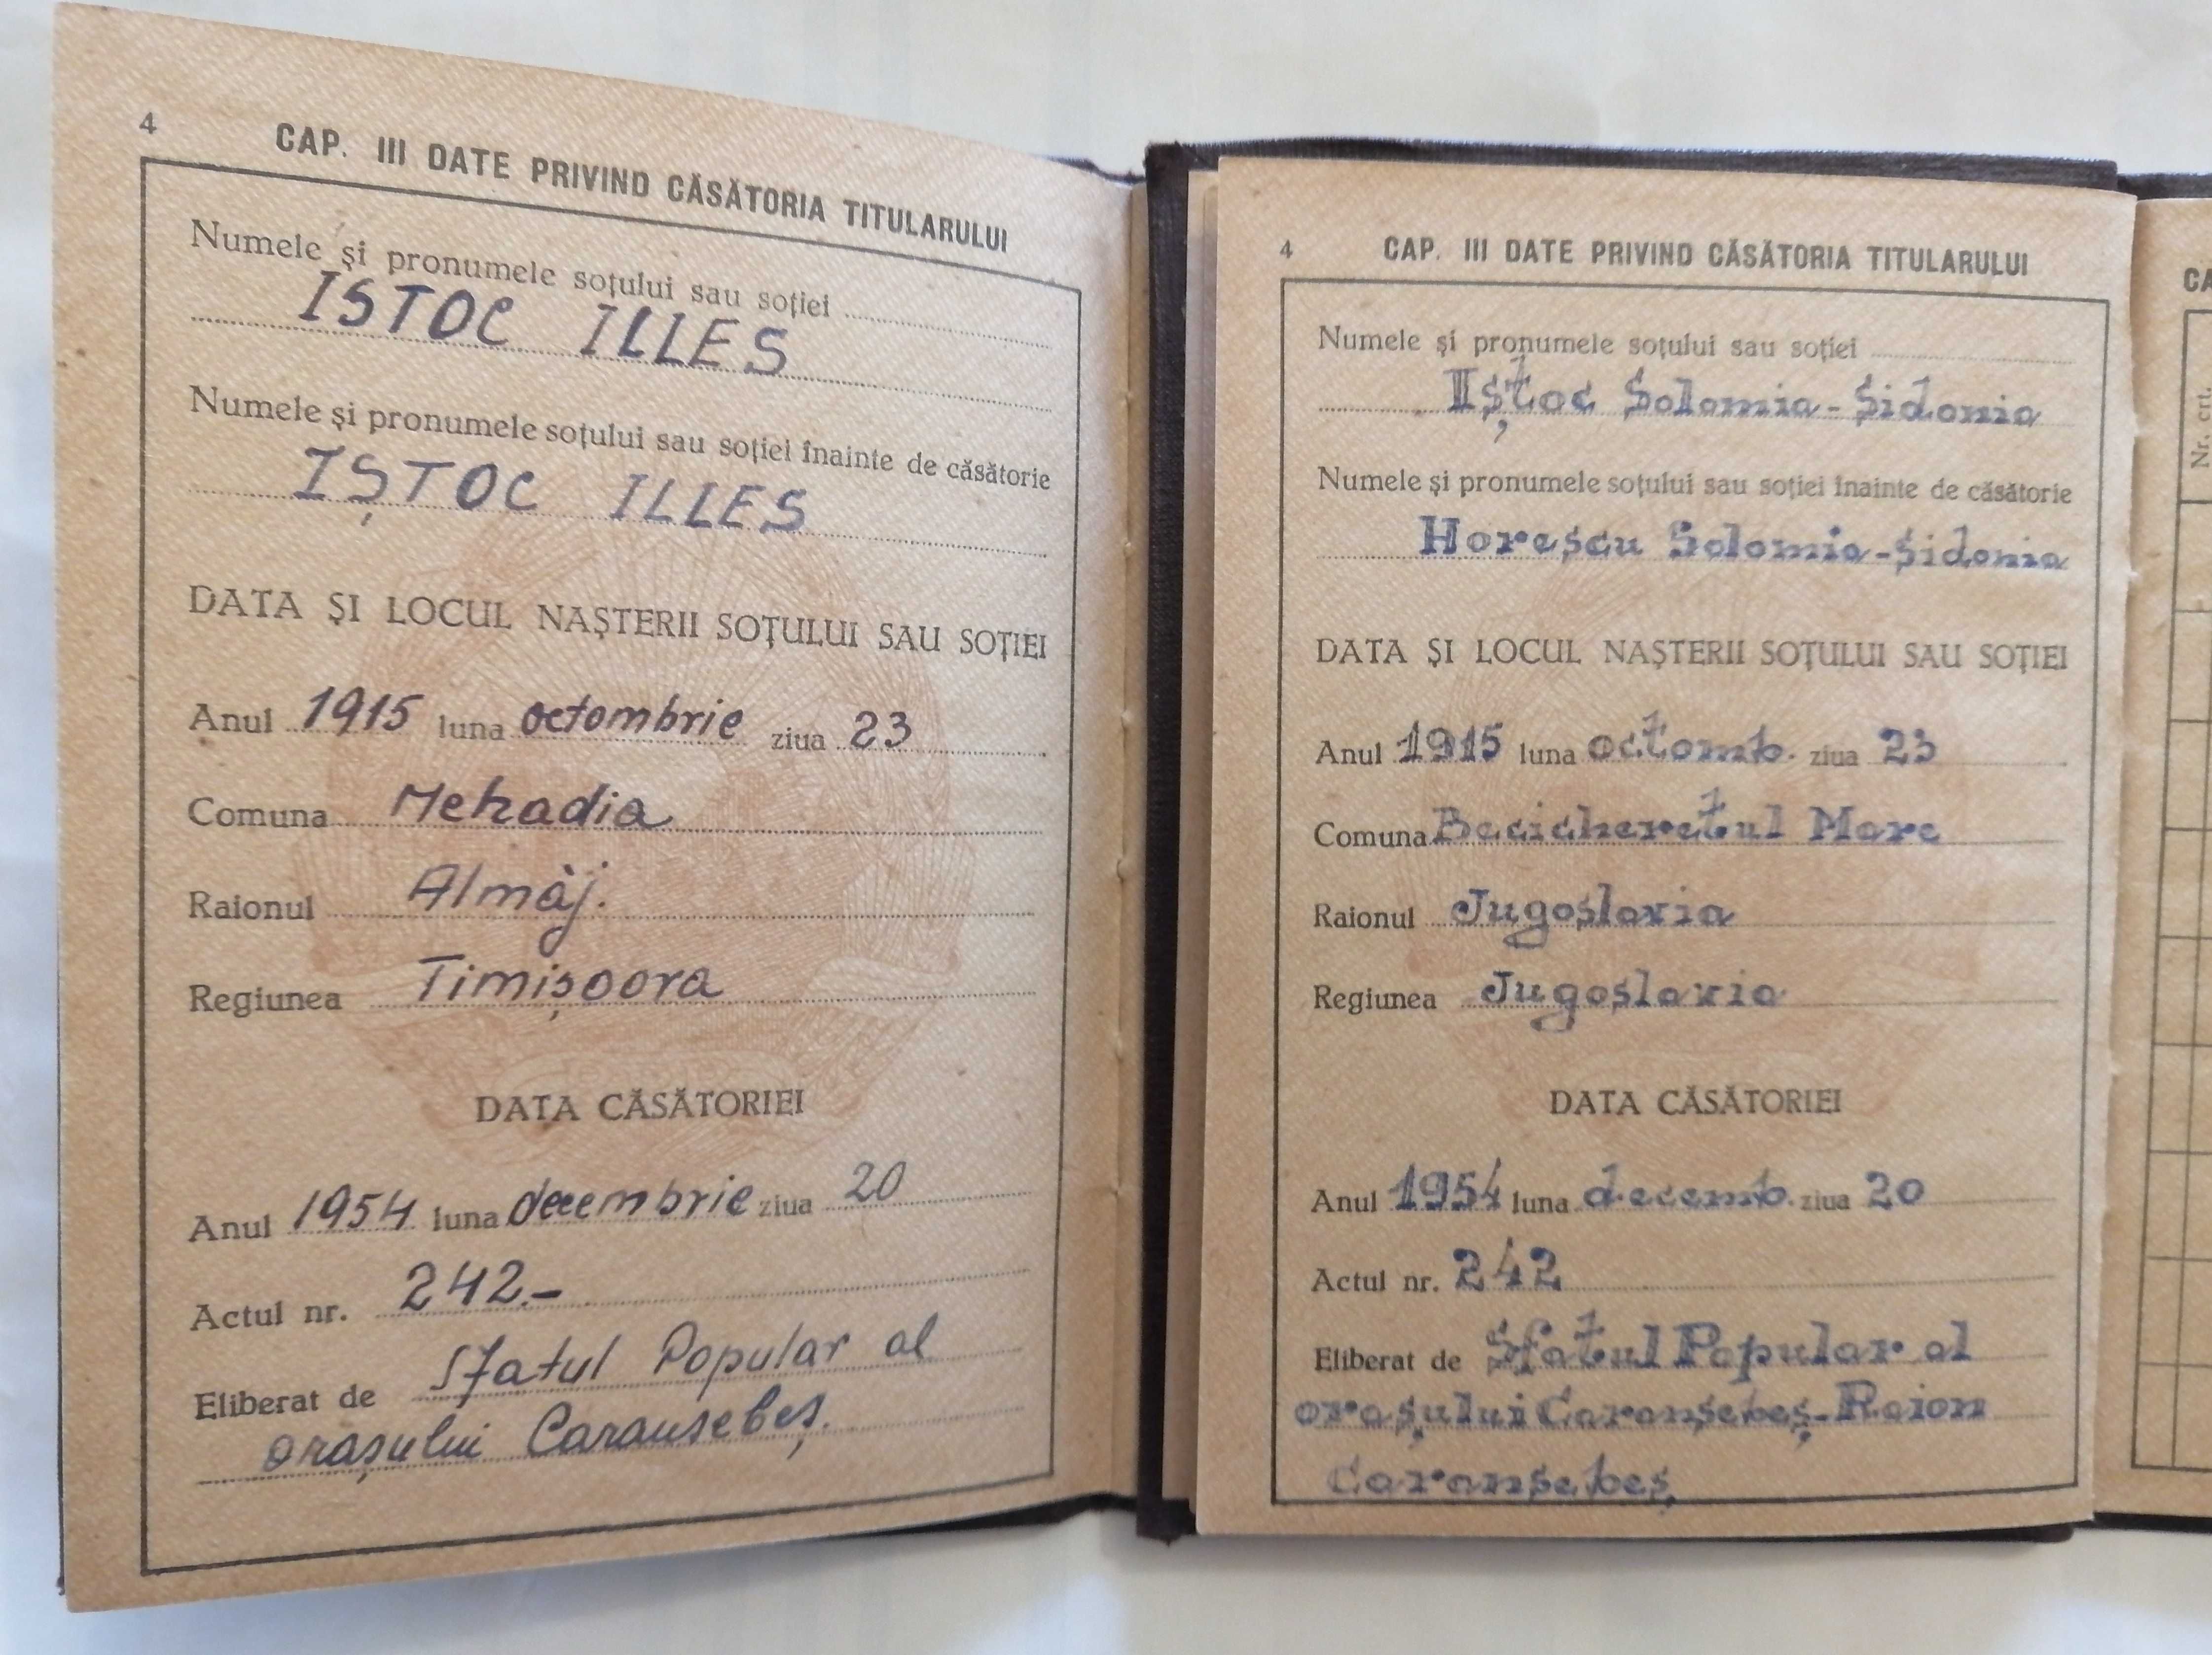 4
CAP. III DATE PRIVIND CĂSĂTORIA TITULARULUI
Numele și pronumele soțului sau soției
ISTOC ILLES
Numele și pronumele soțului sau soției înainte de căsătorie
IȘTOC ILLES
DATA ȘI LOCUL NAȘTERII SOȚULUI SAU SOȚIEI
Anul 1915 luna octombrie ziua 23
Comuna Mehadia
Raionul Almăj.
Regiunea Timișoora
DATA CĂSĂTORIEI
Anul 1954 luna decembrie ziua 20
Actul nr. 242.-
Eliberat de Sfatul Popular al
orașului Caransebeș.
4
CAP. III DATE PRIVIND CĂSĂTORIA TITULARULUI
Numele și pronumele soțului sau soției
Iștoc Solomia-Sidonia
Numele și pronumele soțului sau soției înainte de căsătorie
Horescu Solomia-Sidonia
DATA ȘI LOCUL NAȘTERII SOȚULUI SAU SOȚIEI
Anul 1915 luna octomb. ziua 23
Comuna Becicheretul Mare
Raionul Jugoslavia
Regiunea Jugoslavia
DATA CĂSĂTORIEI
Anul 1954 luna decemb. ziua 20
Actul nr. 242
Eliberat de Sfatul Popular al
orașului Caransebeș-Raion
Caransebeș
CA
Nr. crt.